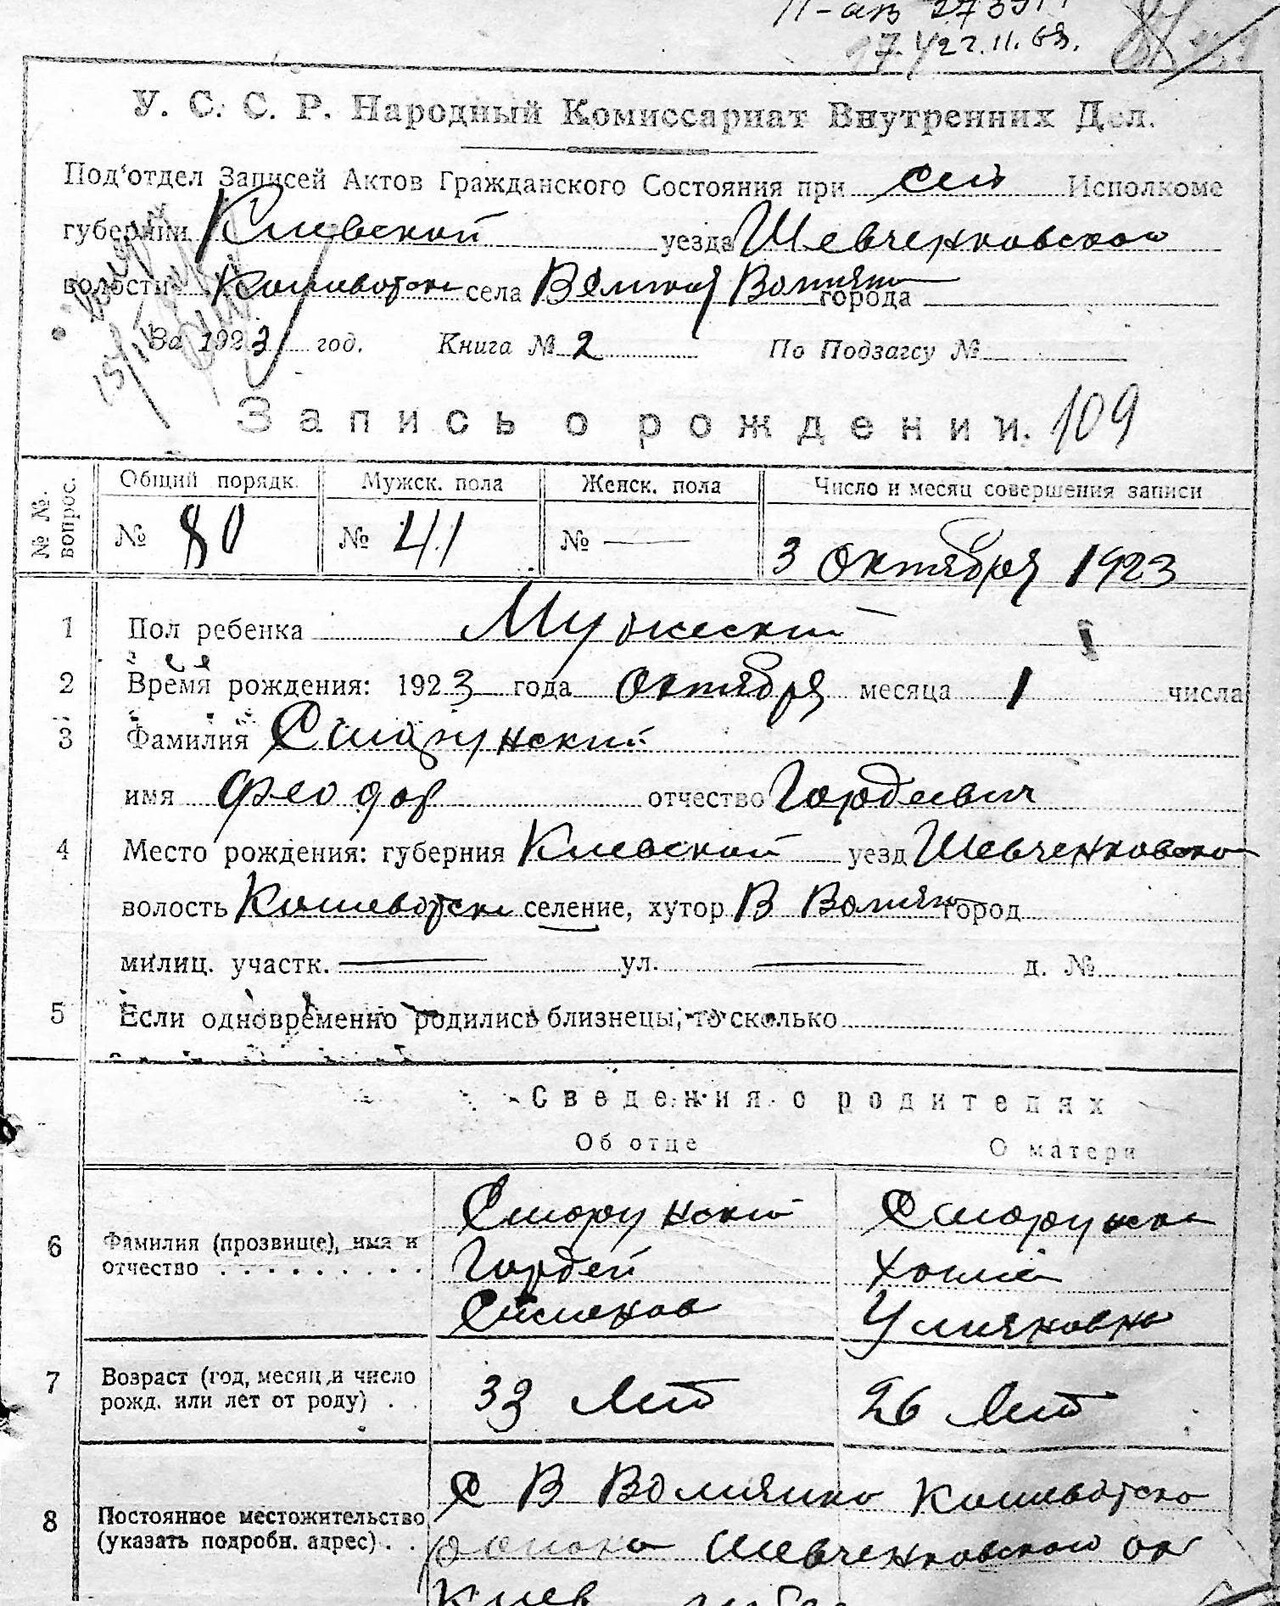 22.11.68.
У. С. С. Р. Народный Комиссариат Внутренних Дел.
Под'отдел Записей Актов Гражданского Состояния при сел Исполкоме
губернии Киевской уезда Шевченковского
волости села города
За 1923 год. Книга № 2 По Подзагсу №
Запись о рождении. 109
№ № вопрос. Общий порядк. Мужск. пола Женск. пола Число и месяц совершения записи
№ 80 № 41 № — 3 октября 1923
1 Пол ребенка Мужеский
2 Время рождения: 1923 года октября месяца 1 числа
3 Фамилия Сморунский
имя Феодор отчество Гордеевич
4 Место рождения: губерния Киевской уезд Шевченковско
волость селение, хутор В город
милиц. участк. — ул. — д. №
5 Если одновременно родились близнецы, то сколько
Сведения о родителях
Об отце О матери
6 Фамилия (прозвище), имя и Сморунский
отчество . . . . . . . . . Гордей
7 Возраст (год, месяц и число 33 лет 26 лет
рожд. или лет от роду) . .
8 Постоянное местожительство С В
(указать подробн. адрес) . . Шевченковского ок
Киев губер